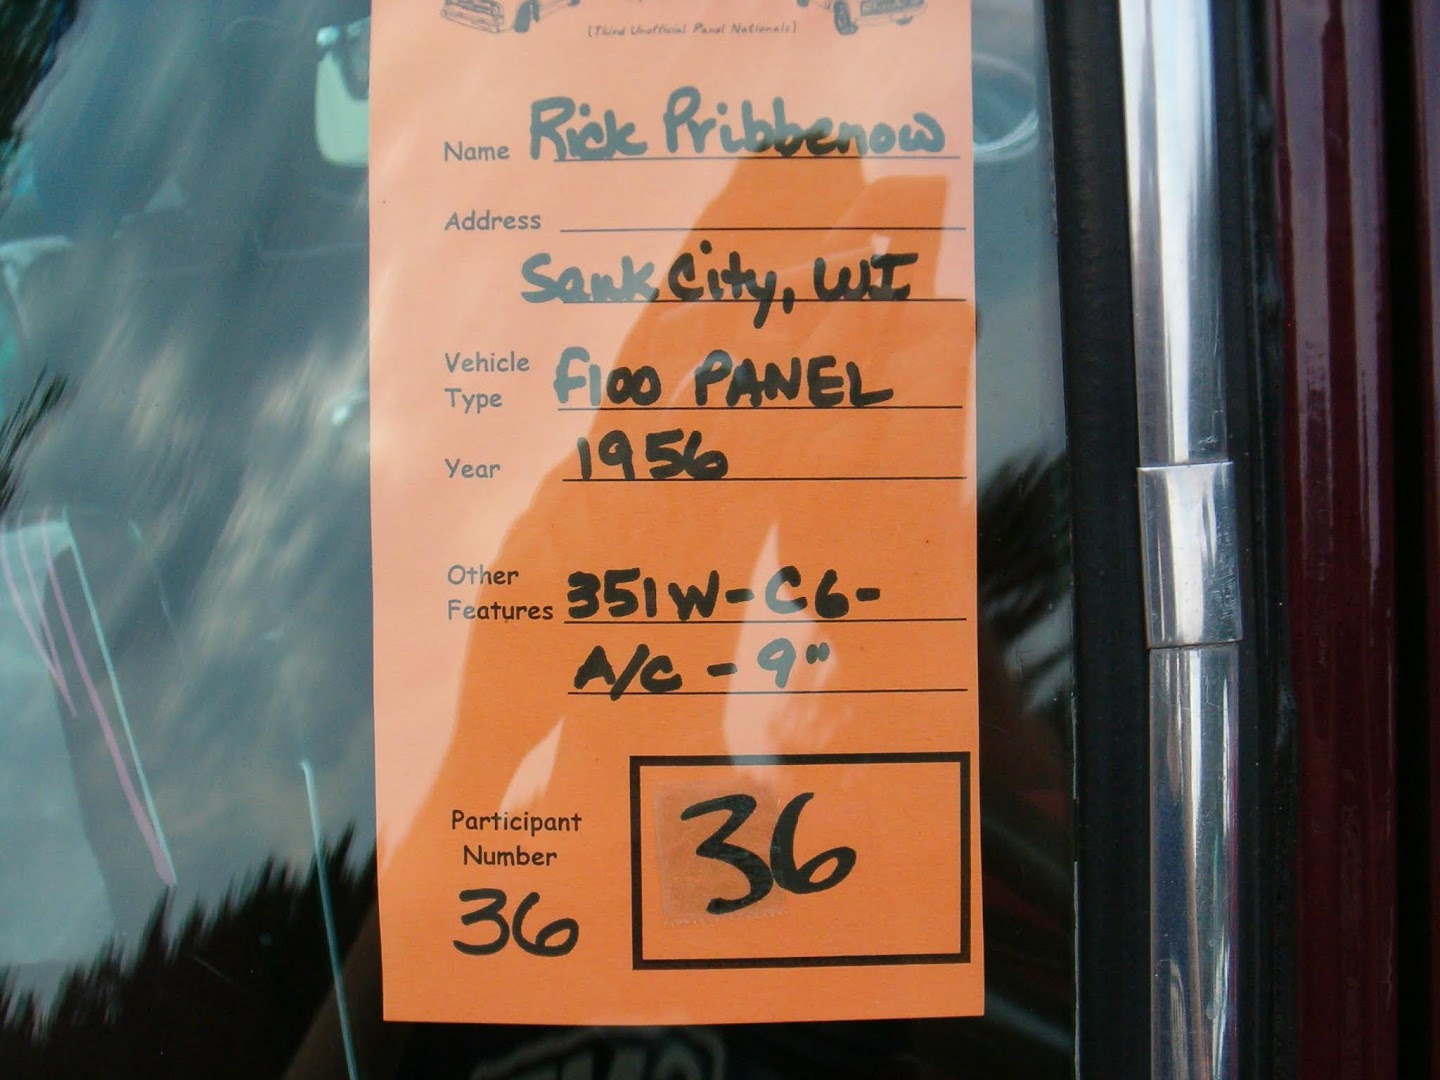 (Third Unofficial Panel Nationals)
Name Rick Pribbenow
Address
Sauk City, WI
Vehicle
Type F100 PANEL
Year 1956
Other
Features 351W-C6-
A/C - 9"
Participant
Number
36
36